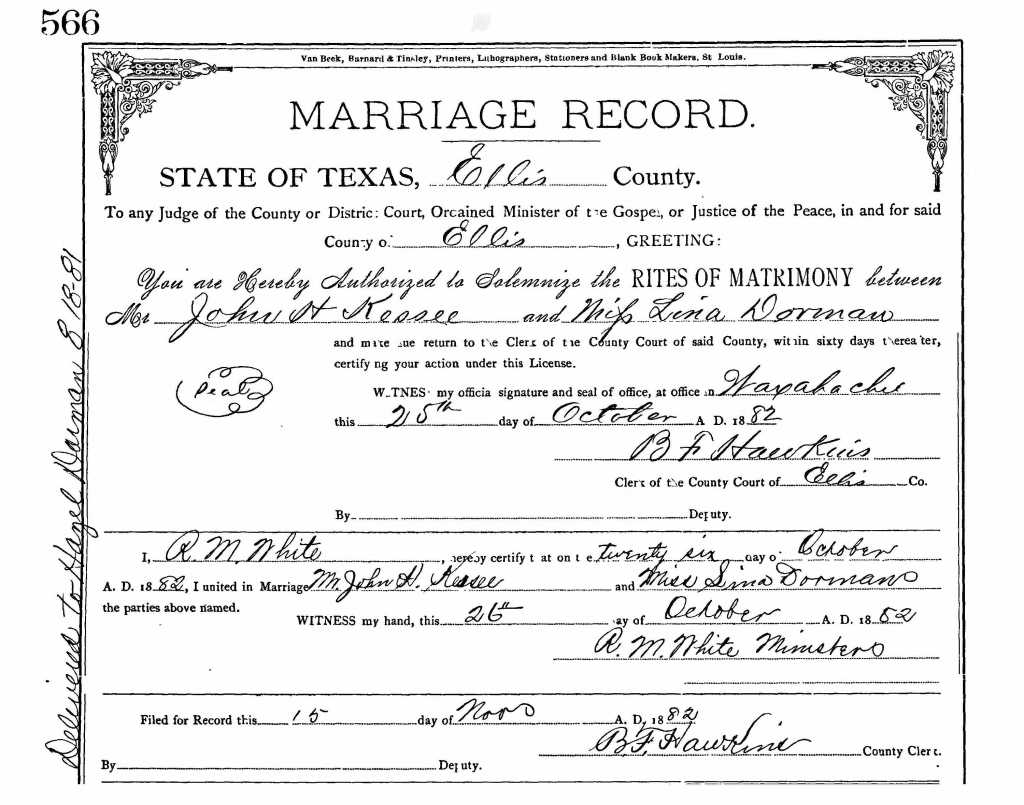 566
Van Beek, Barnard & Tinsley, Printers, Lithographers, Stationers and Blank Book Makers, St Louis.
MARRIAGE RECORD.
STATE OF TEXAS, Ellis County.
To any Judge of the County or District Court, Ordained Minister of the Gospel, or Justice of the Peace, in and for said
County of Ellis, GREETING:
You are Hereby Authorized to Solemnize the RITES OF MATRIMONY between
Mr John H Kessee and Miss Lina Dorman
and make due return to the Clerk of the County Court of said County, within sixty days thereafter,
certifying your action under this License.
Seal
WITNESS my official signature and seal of office, at office in Waxahachie
this 25th day of October A D. 1882
B F Hawkins
Clerk of the County Court of Ellis Co.
By Deputy.
I, R. M. White, hereby certify that on the twenty six day of October
A. D. 1882, I united in Marriage Mr. John H. Kessee and Miss Lina Dorman
the parties above named.
WITNESS my hand, this 26th day of October A. D. 1882
R. M. White Minister
Filed for Record this 15 day of Nov A. D, 1882
B. F. Hawkins County Clerk.
By Deputy.
Delivered to Hazel Dorman 8-18-81